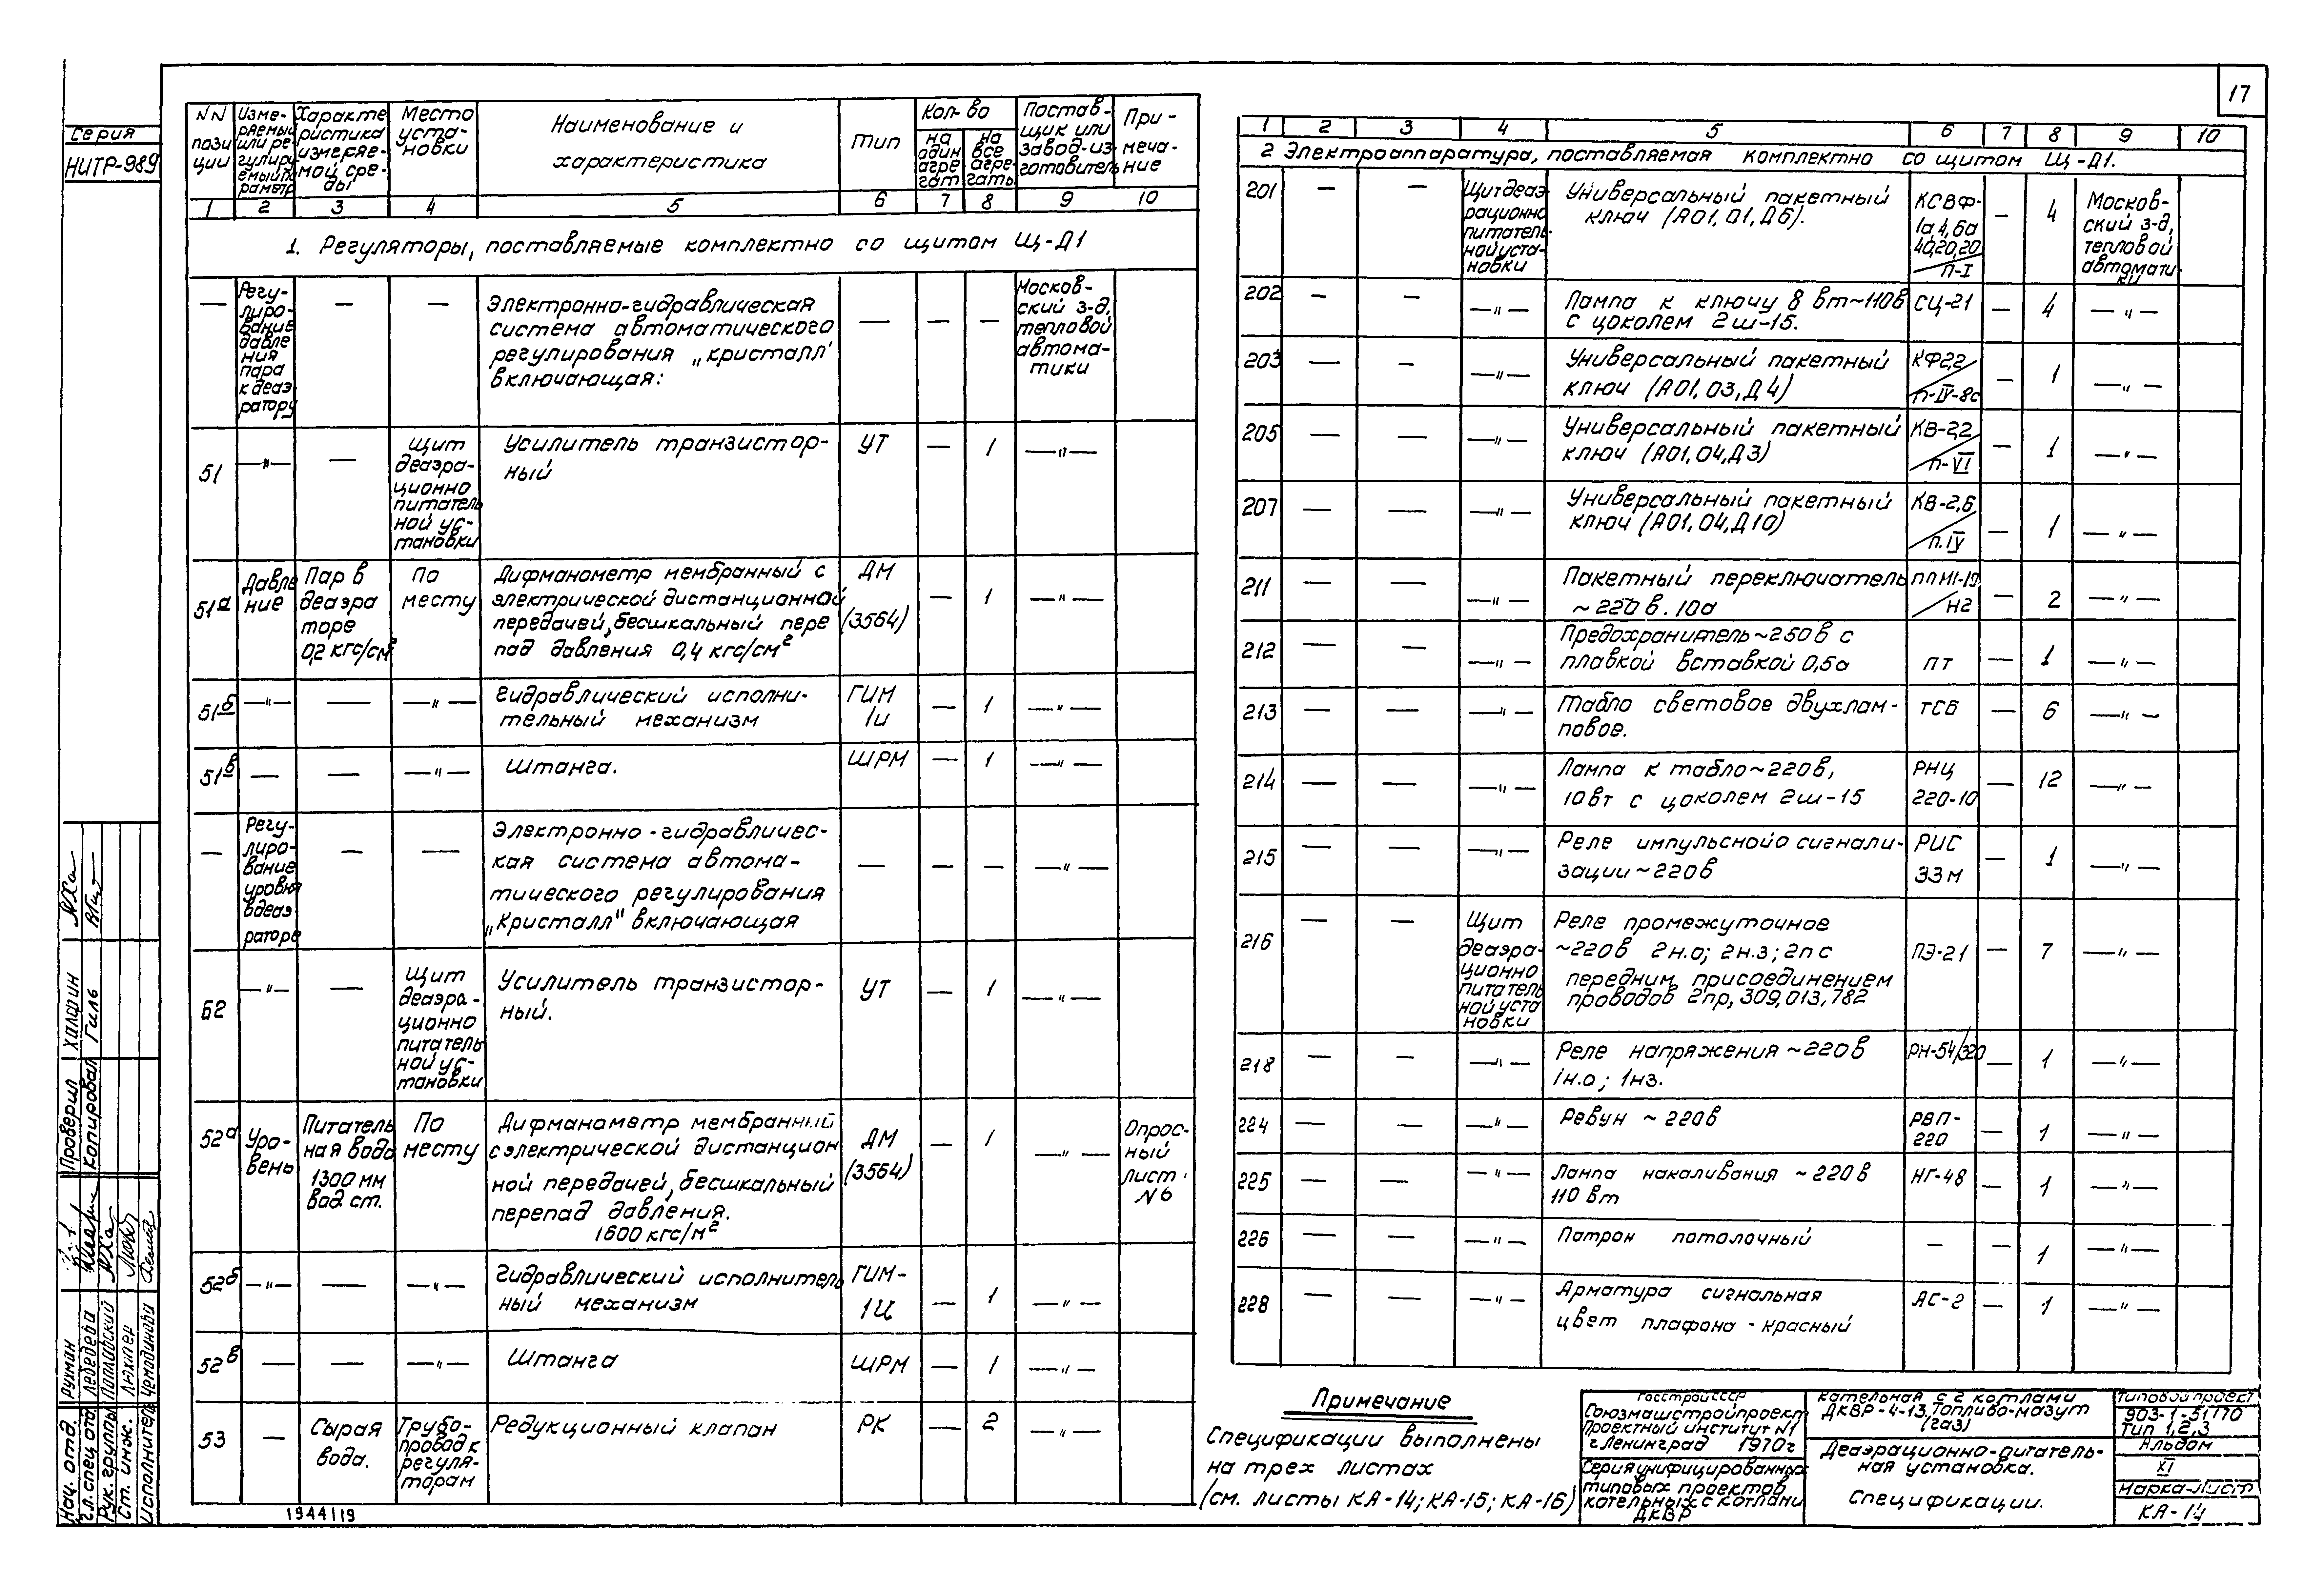 17
Серия
НИТР-989
NN позиции | Измеряемый или регулируемый параметр | Характеристика измеряемой среды | Место установки | Наименование и характеристика | Тип | Кол-во на один агрегат | на все агрегаты | Поставщик или завод-изготовитель | Примечание
1 | 2 | 3 | 4 | 5 | 6 | 7 | 8 | 9 | 10
1. Регуляторы, поставляемые комплектно со щитом Щ-Д1
— | Регулирование давления пара к деаэратору | — | — | Электронно-гидравлическая система автоматического регулирования „кристалл" включающая: | — | — | — | Московский з-д, тепловой автоматики
51 | —"— | — | Щит деаэрационно питательной установки | Усилитель транзисторный | УТ | — | 1 | —"—
51а | Давление | Пар в деаэраторе 0,2 кгс/см² | По месту | Дифманометр мембранный с электрической дистанционной передачей, бесшкальный перепад давления 0,4 кгс/см² | ДМ (3564) | — | 1 | —"—
51б | —"— | — | —"— | Гидравлический исполнительный механизм | ГИМ 1и | — | 1 | —"—
51в | — | — | —"— | Штанга. | ШРМ | — | 1 | —"—
— | Регулирование уровня в деаэраторе | — | — | Электронно-гидравлическая система автоматического регулирования „Кристалл" включающая | — | — | — | —"—
52 | —"— | — | Щит деаэрационно питательной установки | Усилитель транзисторный. | УТ | — | 1 | —"—
52а | Уровень | Питательная вода 1300 мм вод. ст. | По месту | Дифманометр мембранный с электрической дистанционной передачей, бесшкальный перепад давления. 1600 кгс/м² | ДМ (3564) | — | 1 | —"— | Опросный лист N6
52б | —"— | — | —"— | Гидравлический исполнительный механизм | ГИМ-1И | — | 1 | —"—
52в | — | — | —"— | Штанга | ШРМ | — | 1 | —"—
53 | — | Сырая вода. | Трубопровод к регуляторам | Редукционный клапан | РК | — | 2 | —"—
1944/19
1 | 2 | 3 | 4 | 5 | 6 | 7 | 8 | 9 | 10
2 Электроаппаратура, поставляемая комплектно со щитом Щ-Д1.
201 | — | — | Щит деаэрационно питательной установки | Универсальный пакетный ключ (А01, 01, Д6). | КСВФ-1а,4,6а 40,20,20/п-I | — | 4 | Московский з-д, тепловой автоматики
202 | — | — | —"— | Лампа к ключу 8 вт~110в с цоколем 2ш-15. | СЦ-21 | — | 4 | —"—
203 | — | — | —"— | Универсальный пакетный ключ (А01, 03, Д4) | КФ2,2/п-IV-8с | — | 1 | —"—
205 | — | — | —"— | Универсальный пакетный ключ (А01, 04, Д3) | КВ-2,2/п-VI | — | 1 | —"—
207 | — | — | —"— | Универсальный пакетный ключ (А01, 04, Д10) | КВ-2,6/п.IV | — | 1 | —"—
211 | — | — | —"— | Пакетный переключатель ~220в. 10а | ппм1-10/н2 | — | 2 | —"—
212 | — | — | —"— | Предохранитель~250в с плавкой вставкой 0,5а | ПТ | — | 1 | —"—
213 | — | — | —"— | Табло световое двухламповое. | ТСБ | — | 6 | —"—
214 | — | — | —"— | Лампа к табло~220в, 10вт с цоколем 2ш-15 | РНЦ 220-10 | — | 12 | —"—
215 | — | — | —"— | Реле импульсной сигнализации~220в | РИС 33м | — | 1 | —"—
216 | — | — | Щит деаэрационно питательной установки | Реле промежуточное ~220в 2н.о; 2н.з; 2п с передним присоединением проводов 2пр, 309, 013, 782 | ПЭ-21 | — | 7 | —"—
218 | — | — | —"— | Реле напряжения ~220в 1н.о; 1нз. | РН-54/320 | — | 1 | —"—
224 | — | — | —"— | Ревун ~ 220в | РВП-220 | — | 1 | —"—
225 | — | — | —"— | Лампа накаливания ~220в 110 вт | НГ-48 | — | 1 | —"—
226 | — | — | —"— | Патрон потолочный | — | — | 1 | —"—
228 | — | — | —"— | Арматура сигнальная цвет плафона - красный | АС-2 | — | 1 | —"—
Примечание
Спецификации выполнены
на трех листах
(см. листы КА-14; КА-15; КА-16)
Госстрой СССР
Союзмашстройпроект
Проектный институт N1
г Ленинград 1970г
Серия унифицированных
типовых проектов
котельных с котлами
ДКВР
Котельная с 2 котлами
ДКВР-4-13, топливо-мазут
(газ)
Деаэрационно-питательная установка.
Спецификации.
Типовой проект
903-1-51/70
Тип 1,2,3
Альбом
XI
Марка-лист
КА-14
Проверил Халфин
Копировал Гиль
Нач. отд. Рухман
Гл. спец отд. Лебедева
Рук. группы Поплавский
Ст. инж.
Исполнитель